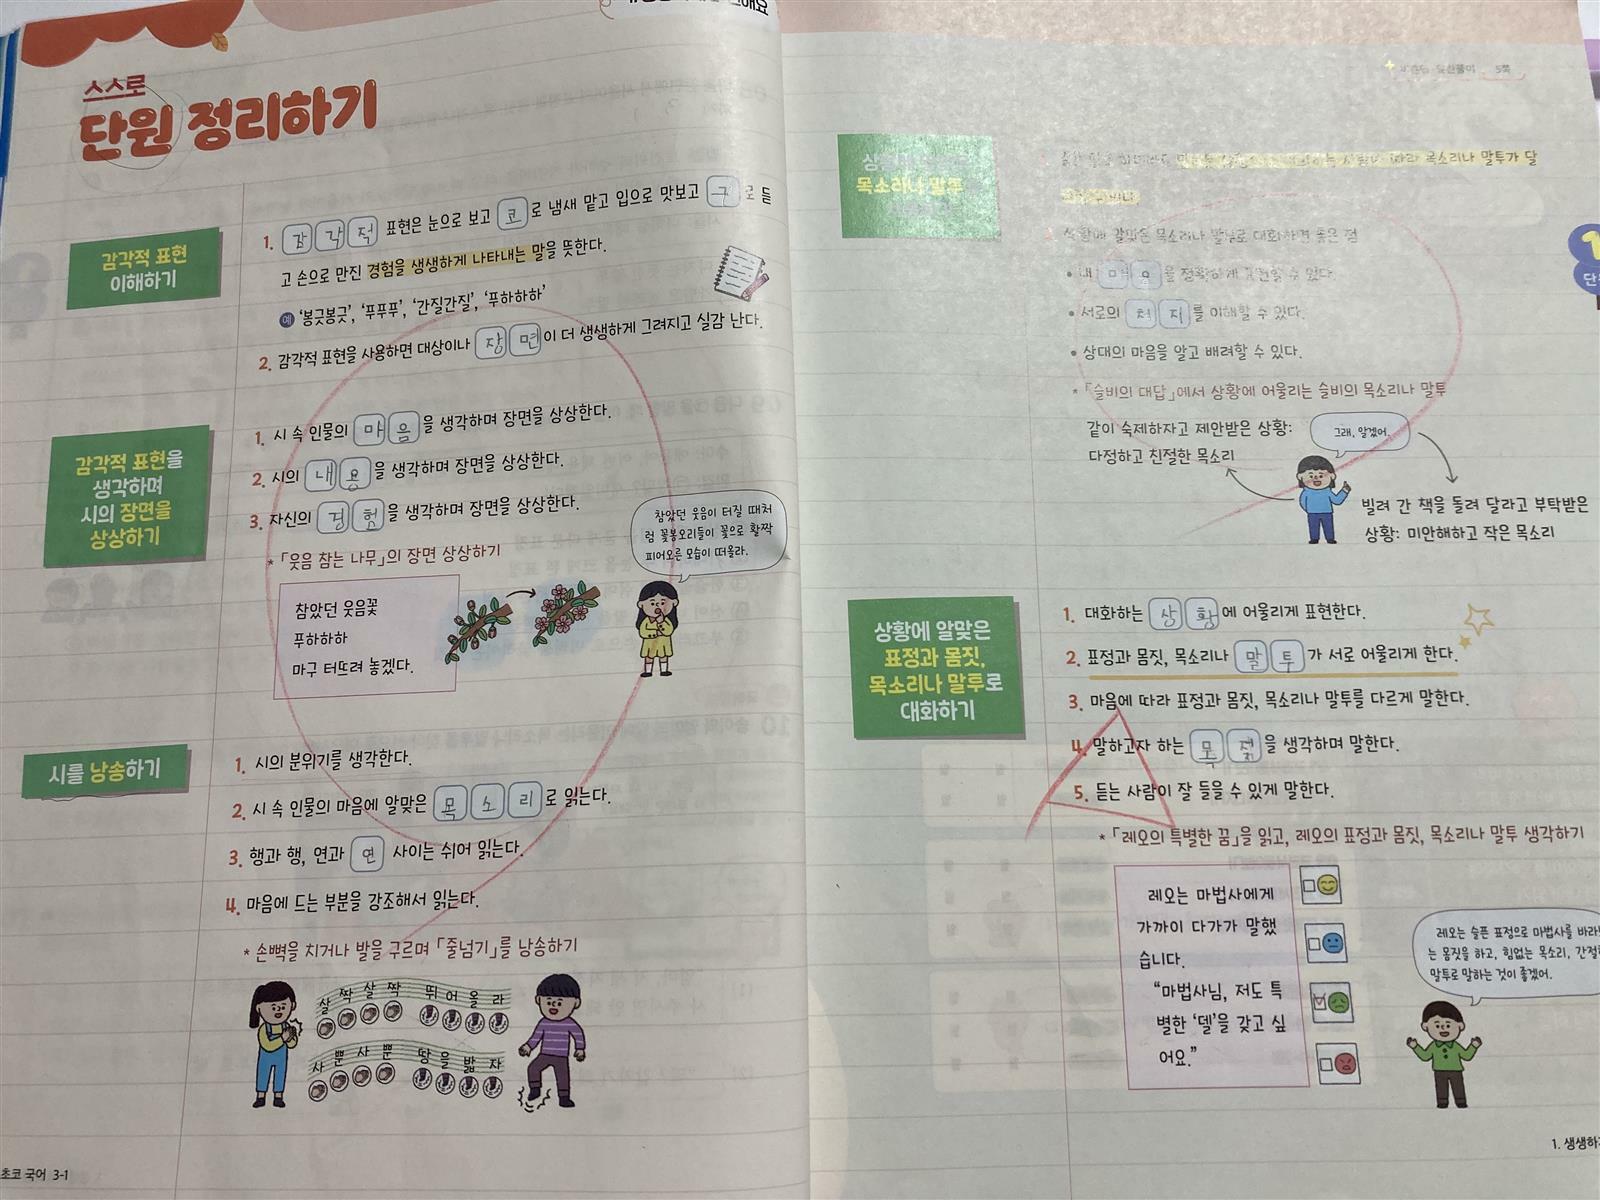 스스로
단원 정리하기
감각적 표현
이해하기
1. 감각적 표현은 눈으로 보고 코로 냄새 맡고 입으로 맛보고 귀로 듣
고 손으로 만진 경험을 생생하게 나타내는 말을 뜻한다.
예 '봉긋봉긋', '푸푸푸', '간질간질', '푸하하하'
2. 감각적 표현을 사용하면 대상이나 장면이 더 생생하게 그려지고 실감 난다.
감각적 표현을
생각하며
시의 장면을
상상하기
1. 시 속 인물의 마음을 생각하며 장면을 상상한다.
2. 시의 내용을 생각하며 장면을 상상한다.
3. 자신의 경험을 생각하며 장면을 상상한다.
* 「웃음 참는 나무」의 장면 상상하기
참았던 웃음꽃
푸하하하
마구 터뜨려 놓겠다.
참았던 웃음이 터질 때처
럼 꽃봉오리들이 꽃으로 활짝
피어오른 모습이 떠올라.
시를 낭송하기
1. 시의 분위기를 생각한다.
2. 시 속 인물의 마음에 알맞은 목소리로 읽는다.
3. 행과 행, 연과 연 사이는 쉬어 읽는다.
4. 마음에 드는 부분을 강조해서 읽는다.
* 손뼉을 치거나 발을 구르며 「줄넘기」를 낭송하기
살 짝 살 짝 뛰 어 올 라
사 뿐 사 뿐 땅 을 밟 자
초코 국어 3-1
5쪽
목소리나 말투
따라 목소리나 말투가 달
상황에 알맞은 목소리나 말투로 대화하면 좋은 점
• 내 을 정확하게 표현할 수 있다.
• 서로의 처지를 이해할 수 있다.
• 상대의 마음을 알고 배려할 수 있다.
* 「슬비의 대답」에서 상황에 어울리는 슬비의 목소리나 말투
같이 숙제하자고 제안받은 상황:
다정하고 친절한 목소리
그래, 알겠어.
빌려 간 책을 돌려 달라고 부탁받은
상황: 미안해하고 작은 목소리
상황에 알맞은
표정과 몸짓,
목소리나 말투로
대화하기
1. 대화하는 상황에 어울리게 표현한다.
2. 표정과 몸짓, 목소리나 말투가 서로 어울리게 한다.
3. 마음에 따라 표정과 몸짓, 목소리나 말투를 다르게 말한다.
4. 말하고자 하는 목적을 생각하며 말한다.
5. 듣는 사람이 잘 들을 수 있게 말한다.
* 「레오의 특별한 꿈」을 읽고, 레오의 표정과 몸짓, 목소리나 말투 생각하기
레오는 마법사에게
가까이 다가가 말했
습니다.
"마법사님, 저도 특
별한 '델'을 갖고 싶
어요."
레오는 슬픈 표정으로 마법사를
는 몸짓을 하고, 힘없는 목소리,
말투로 말하는 것이 좋겠어.
1. 생생하